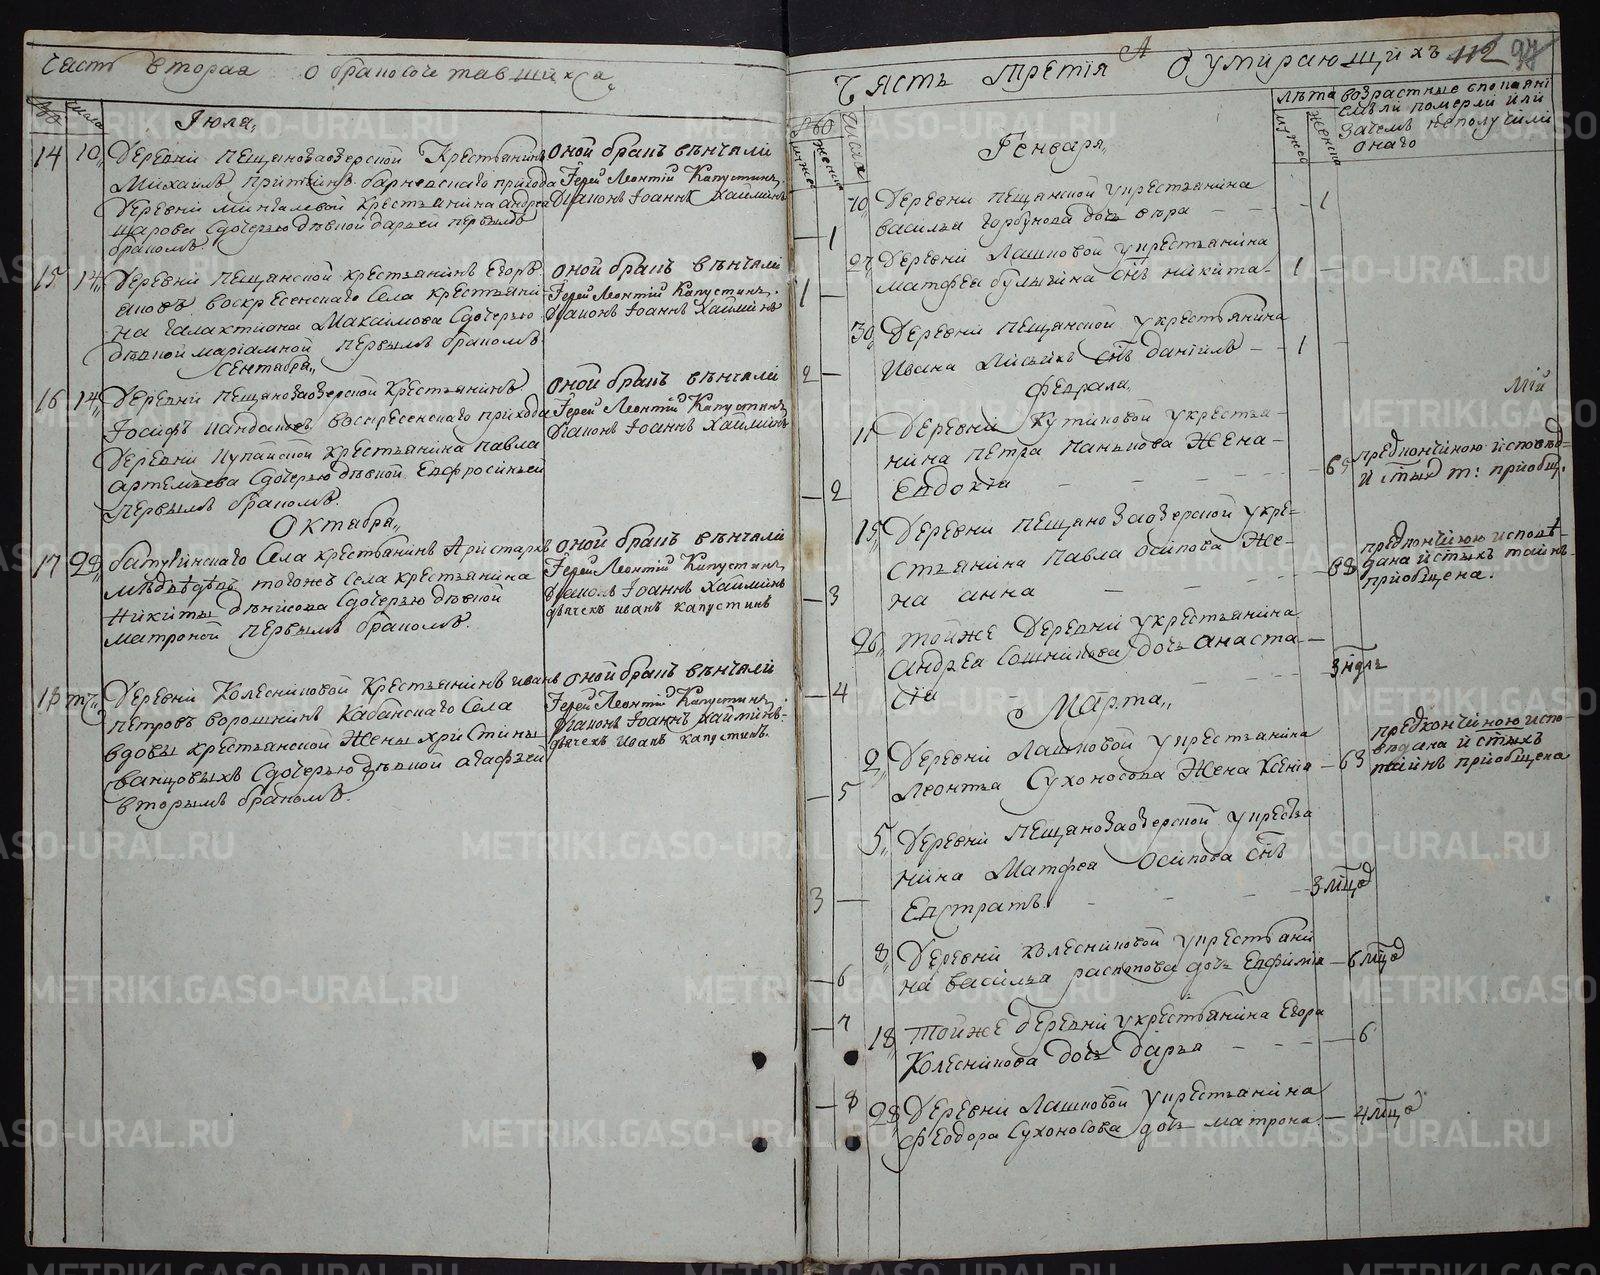 Часть вторая о бракосочетавшихся
Июля
14 10 Деревни Пещанозаозерской Крестьянинъ
Михаилъ барневскаго прихода
Деревни Мингалевой Крестьянина Андрея
Шарова сдочерью девкой Дарьей первымъ
бракомъ
Оной бракъ венчали
Іерей Леонтій Капустинъ
Діаконъ Іоаннъ Хайминъ
15 14 Деревни Пещанской крестьянинъ Егоръ
воскресенскаго Села крестьяни-
на Галактиона Максимова сдочерью
девкой маріамной первымъ бракомъ
Оной бракъ венчали
Іерей Леонтій Капустинъ
Діаконъ Іоаннъ Хайминъ
Сентября
16 14 Деревни Пещанозаозерской Крестьянинъ
Іосифъ воскресенскаго прихода
Деревни крестьянина Павла
Артемьева сдочерью девкой Евфросиньей
первымъ бракомъ
Оной бракъ венчали
Іерей Леонтій Капустинъ
Діаконъ Іоаннъ Хайминъ
Октября
17 22 батуринскаго Села крестьянинъ Аристархъ
тогожъ села крестьянина
Никиты Денисова сдочерью девкой
Матроной первымъ бракомъ
Оной бракъ венчали
Іерей Леонтій Капустинъ
Діаконъ Іоаннъ Хайминъ
дьячекъ иванъ капустинъ
18 Деревни Колесниковой Крестьянинъ иванъ
петровъ ворошнинъ Кабанскаго Села
вдовы крестьянской Жены Христины
сдочерью девкой агафьей
вторымъ бракомъ
Оной бракъ венчали
Іерей Леонтій Капустинъ
Діаконъ Іоаннъ Хайминъ
дьячекъ Иванъ капустинъ
Часть третія о умирающихъ 112 97
число
лета
мужес женска
возрастные спокаяні
емъли померли или
зачемъ неполучили
онаго
Генваря
10 Деревни Пещанской укрестьянина
василья горбунова дочь вера 1
1
27 Деревни Лашковой укрестьянина
матфея булыгина снъ никита 1
1
30 Деревни Пещанской укрестьянина
Ивана снъ даніилъ 1
2
Февраля
11 Деревни Кутиковой укрестья-
нина петра Панькова Жена
Евдокія 65
2
предкончиною исповед
и стыхъ т: приобщ.
15 Деревни Пещанозаозерской укре-
стьянина Павла осипова Же-
на анна 68
3
предкончиною испове-
дана истыхъ тайнъ
приобщена.
26 тойже Деревни укрестьянина
Андрея Сошникова дочь анаста-
сія 3 недль
4
Марта
2 Деревни Лашковой укрестьянина
Леонтья Сухоносова Жена Ксенія 63
5
предкончиною испо-
ведана и стыхъ
тайнъ приобщена
5 Деревни Пещанозаозерской укрестья
нина Матфея Осипова снъ
Евстратъ 3 мцъ
3
8 Деревни колесниковой укрестьяни
на василья распопова дочь Евфимія 6 мцъ
6
18 тойже деревни укрестьянина Егора
Колесникова дочь дарья 6
7
28 Деревни Лашковой укрестьянина
Феодора Сухоносова дочь матрона 4 мцъ
8
METRIKI.GASO-URAL.RU